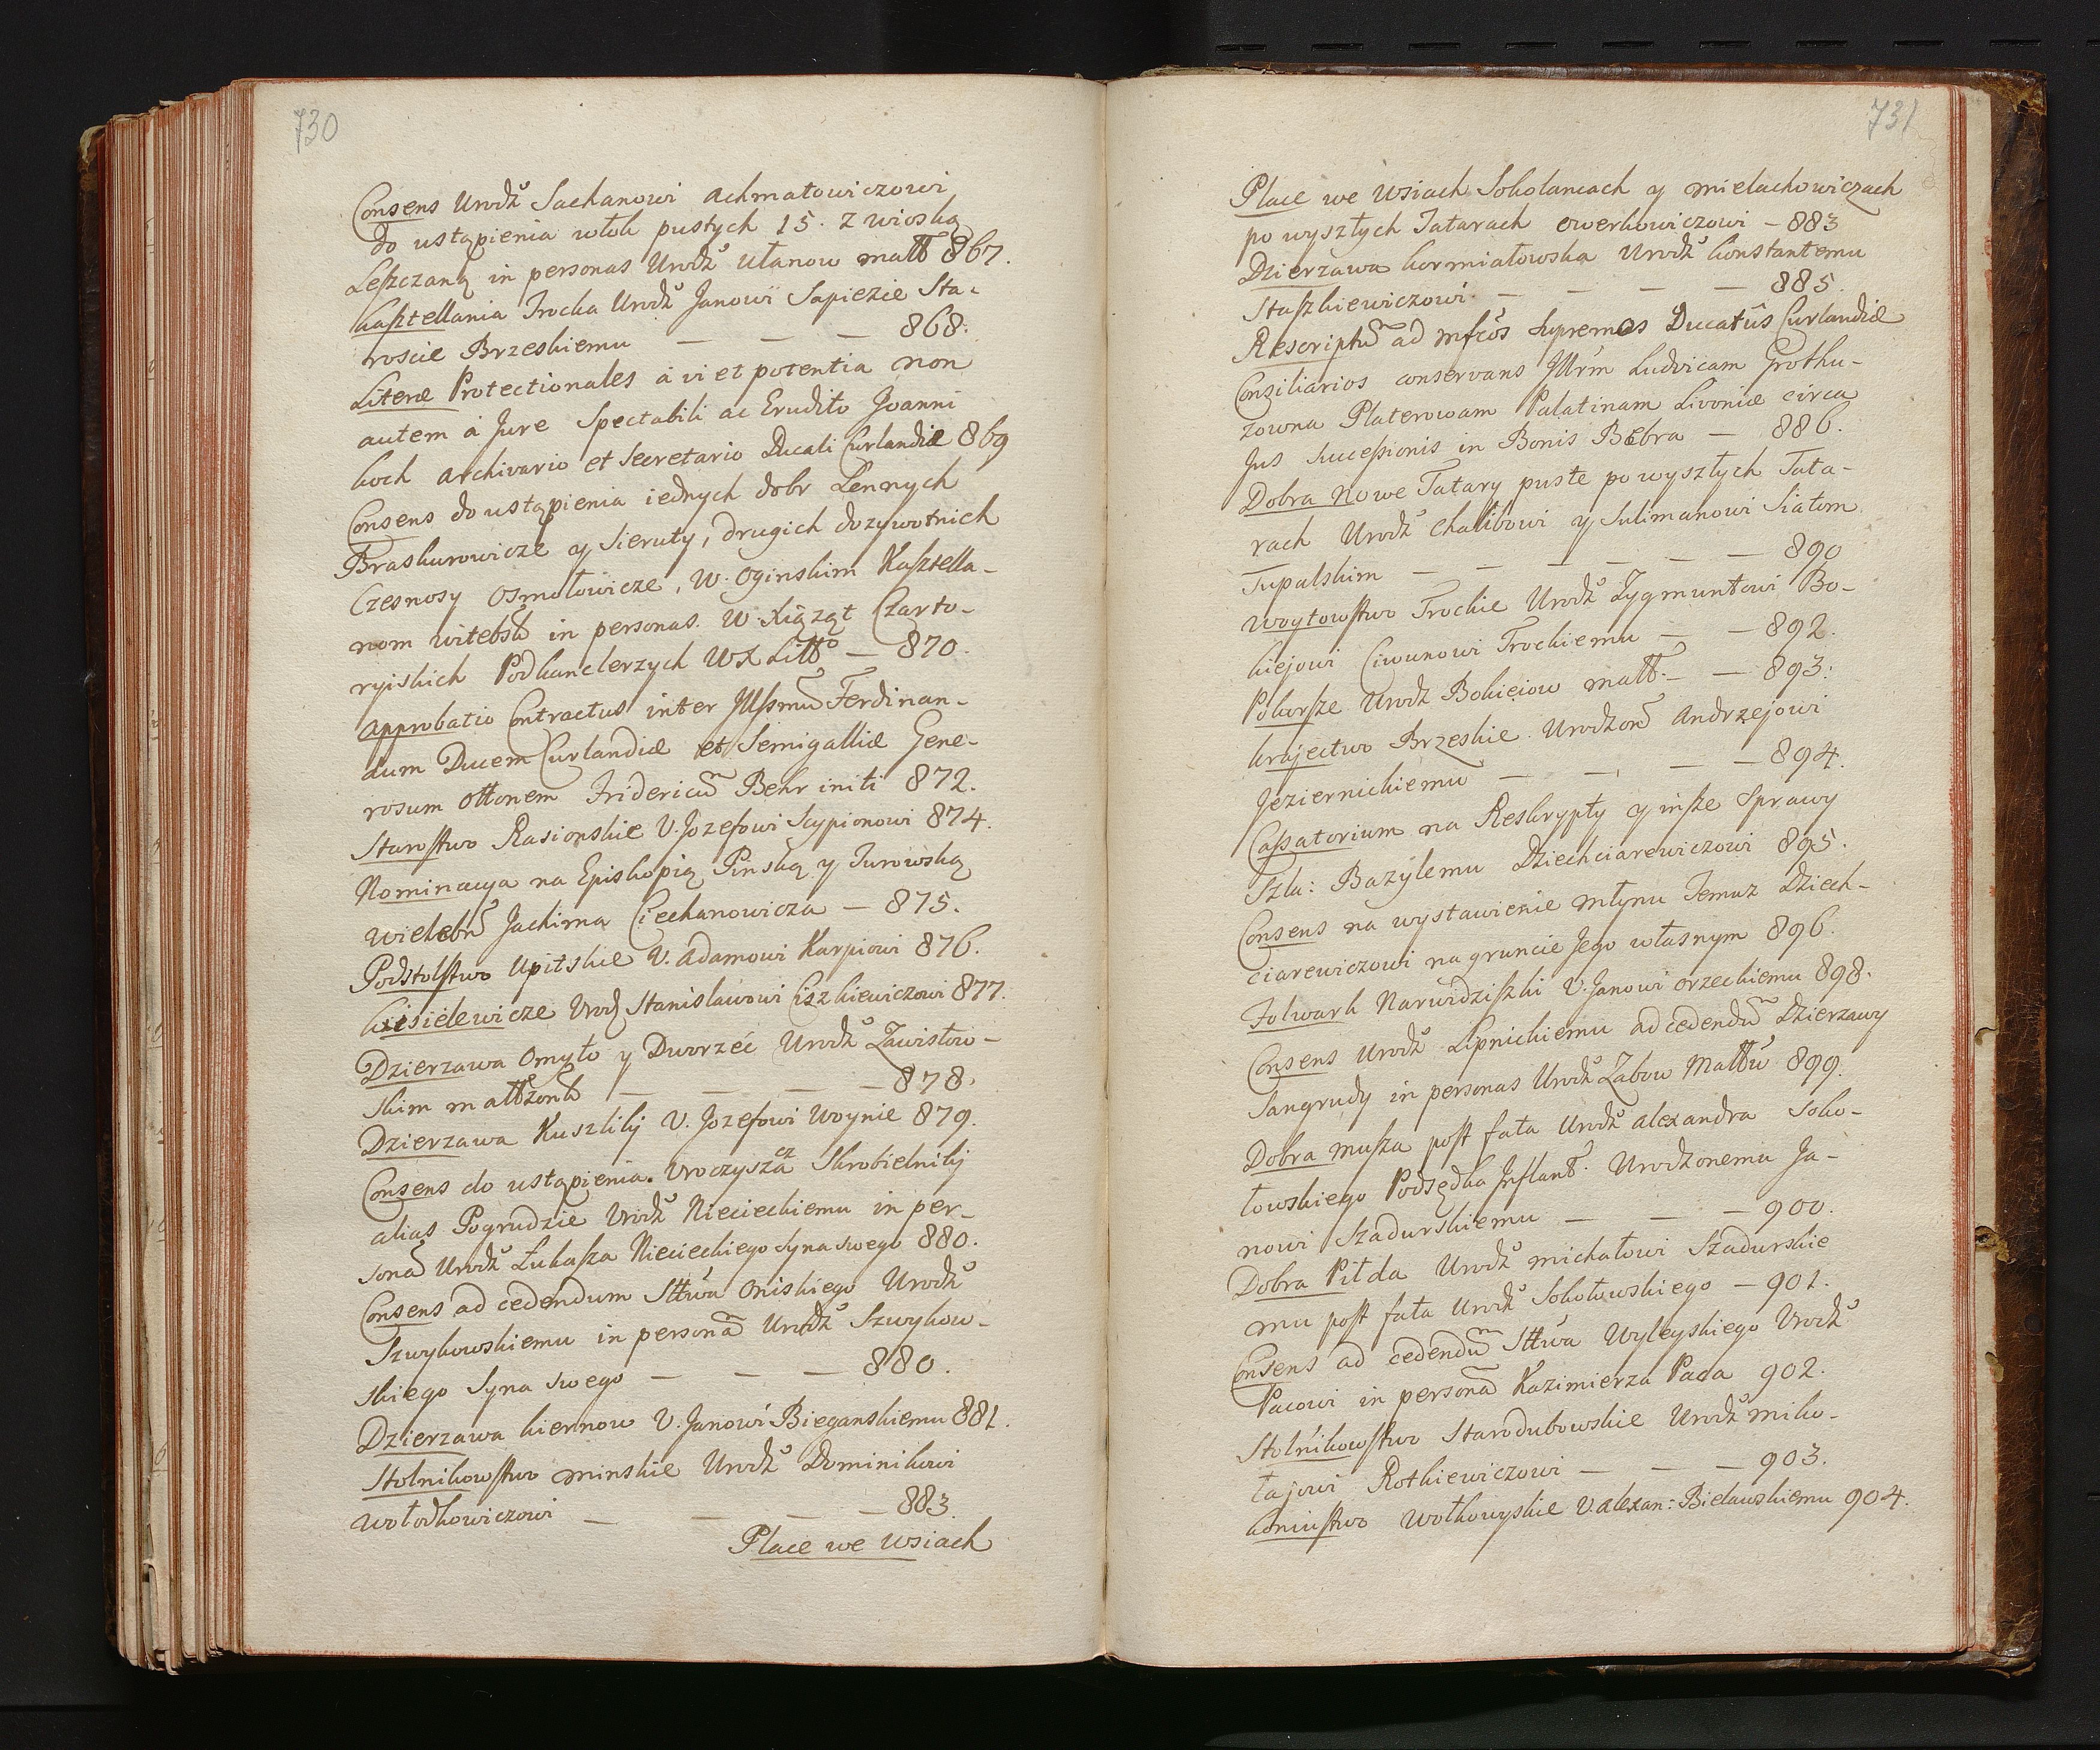 730
Consens Urodz Sachanowi Achmatowiczowi
do ustąpienia włok pustych 15. z wioską
Leszczaną in personas Urodz Ułanow małł 867.
Kasztellania Trocka Urodz Janowi Sapiezie Sta-
roscie Brzeskiemu — — — 868.
Literæ Protectionales à vi et potentia non
autem à Jure Spectabili ac Erudito Joanni
Koch Archivario et Secretario Ducali Curlandiæ 869
Consens do ustąpienia iednych dobr Lennych
Braskurowicze y Sieruty, drugich dozywotnich
Czesnosy Osmołowicze, W. Oginskim Kasztella-
nom witebsk in personas. W. Xiąząt Czarto-
ryiskich Podkanclerzych WXLitto — 870.
Approbatio Contractus inter Illssmu Ferdinan-
dum Ducem Curlandiæ et Semigalliæ Gene-
rosum Ottonem Fridericu Behr initi 872.
Starostwo Rasionskie U. Jozefowi Scypionowi 874.
Nominacya na Episkopią Pinską y Turowską
wielebn Jachima Ciechanowicza — 875.
Podstolstwo Upitskie U. Adamowi Karpiowi 876.
Kisielewicze Urodz Stanisławowi Ciszkiewiczowi 877.
Dzierzawa Omyto y Dworzéc Urodz Zawistow-
skim małłzonk — — — — 878.
Dzierzawa Kuszliły U. Jozefowi Woynie 879.
Consens do ustąpienia Uroczyszcza Skrobielniły
alias Pogrudzie Urodz Niecieckiemu in per-
sona Urodz Łukasza Niecieckiego syna swego 880.
Consens ad cedendum Sttwa Oniskiego Urodz
Szwykowskiemu in persona Urodz Szwykow-
skiego Syna swego — — — 880.
Dzierzawa Kiernow U. Janowi Bieganskiemu 881.
Stolnikowstwo minskie Urodz Dominikowi
Wołodkowiczowi — — — — 883.
Place we wsiach
731
Place we wsiach Sokolancach y mielachowiczach
po wyszłych Tatarach Owerkowiczowi — 883
Dzierzawa Kormiałowska Urodz Konstantemu
Staszkiewiczowi — — — — 885.
Rescriptu ad Mfcos Supremos Ducatûs Curlandiæ
Consiliarios conservans Illrm Ludvicam Grothu-
zowna Platerowam Palatinam Livoniæ circa
Jus Successionis in Bonis Bebra — 886.
Dobra Nowe Tatary puste po wyszłych Tata-
rach Urodz Chalibowi y Sulimanowi Siatom
Tupalskim — — — — — — 890
Woytowstwo Trockie Urodz Zygmuntowi Bo-
kiejowi Ciwunowi Trockiemu — — 892.
Pokorsze Urodz Bokieiow małł. — — 893.
Krajectwo Brzeskie. Urodzon Andrzejowi
Jeziernickiemu — — — — 894.
Cassatorium na Reskrypty y insze Sprawy
Szla: Bazylemu Dziechciarewiczowi 895.
Consens na wystawienie młynu Temuz Dziech-
ciarewiczowi na gruncie Jego własnym 896.
Folwark Narwidziszki U. Janowi Orzeckiemu 898.
Consens Urodz Lipnickiemu ad cedendu Dzierzawy
Sangrudy in personas Urodz Zabow Małłw 899.
Dobra musza post fata Urodz Alexandra Soko-
łowskiego Podsędka Inflant. Urodzonemu Ja-
nowi Szadurskiemu — — — 900.
Dobra Piłda Urodz michałowi Szadurskie
mu post fata Urodz Sokołowskiego — 901.
Consens ad cedendu Sttwa Wyleyskiego Urodz
Pacowi in persona Kazimierza Paca 902.
Stolnikowstwo Starodubowskie Urodz miko-
łajowi Rothiewiczowi — — — 903.
Koniustwo Wołkowyskie U. Alexan: Bielawskiemu 904.